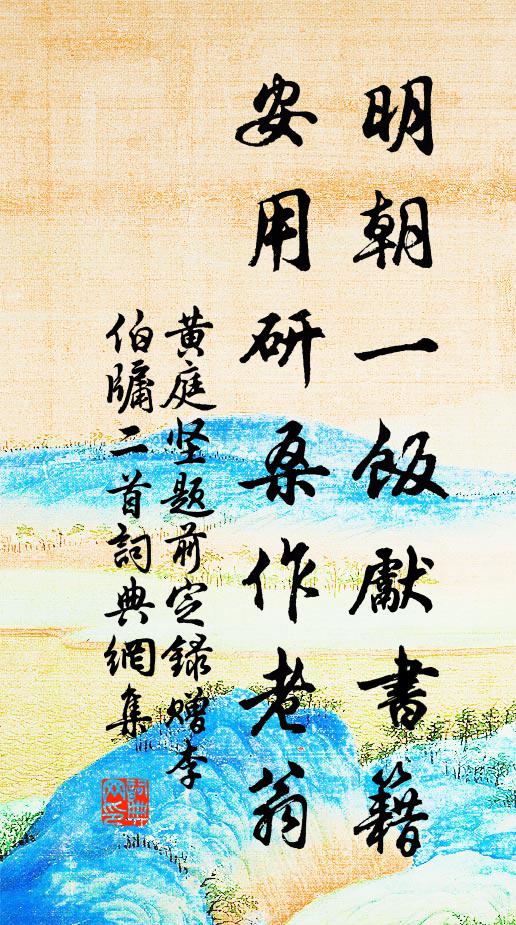 明朝一飯獻書籍
安用研桑作老翁
黃庭坚題前定録贈李
伯牖二首詞典網集